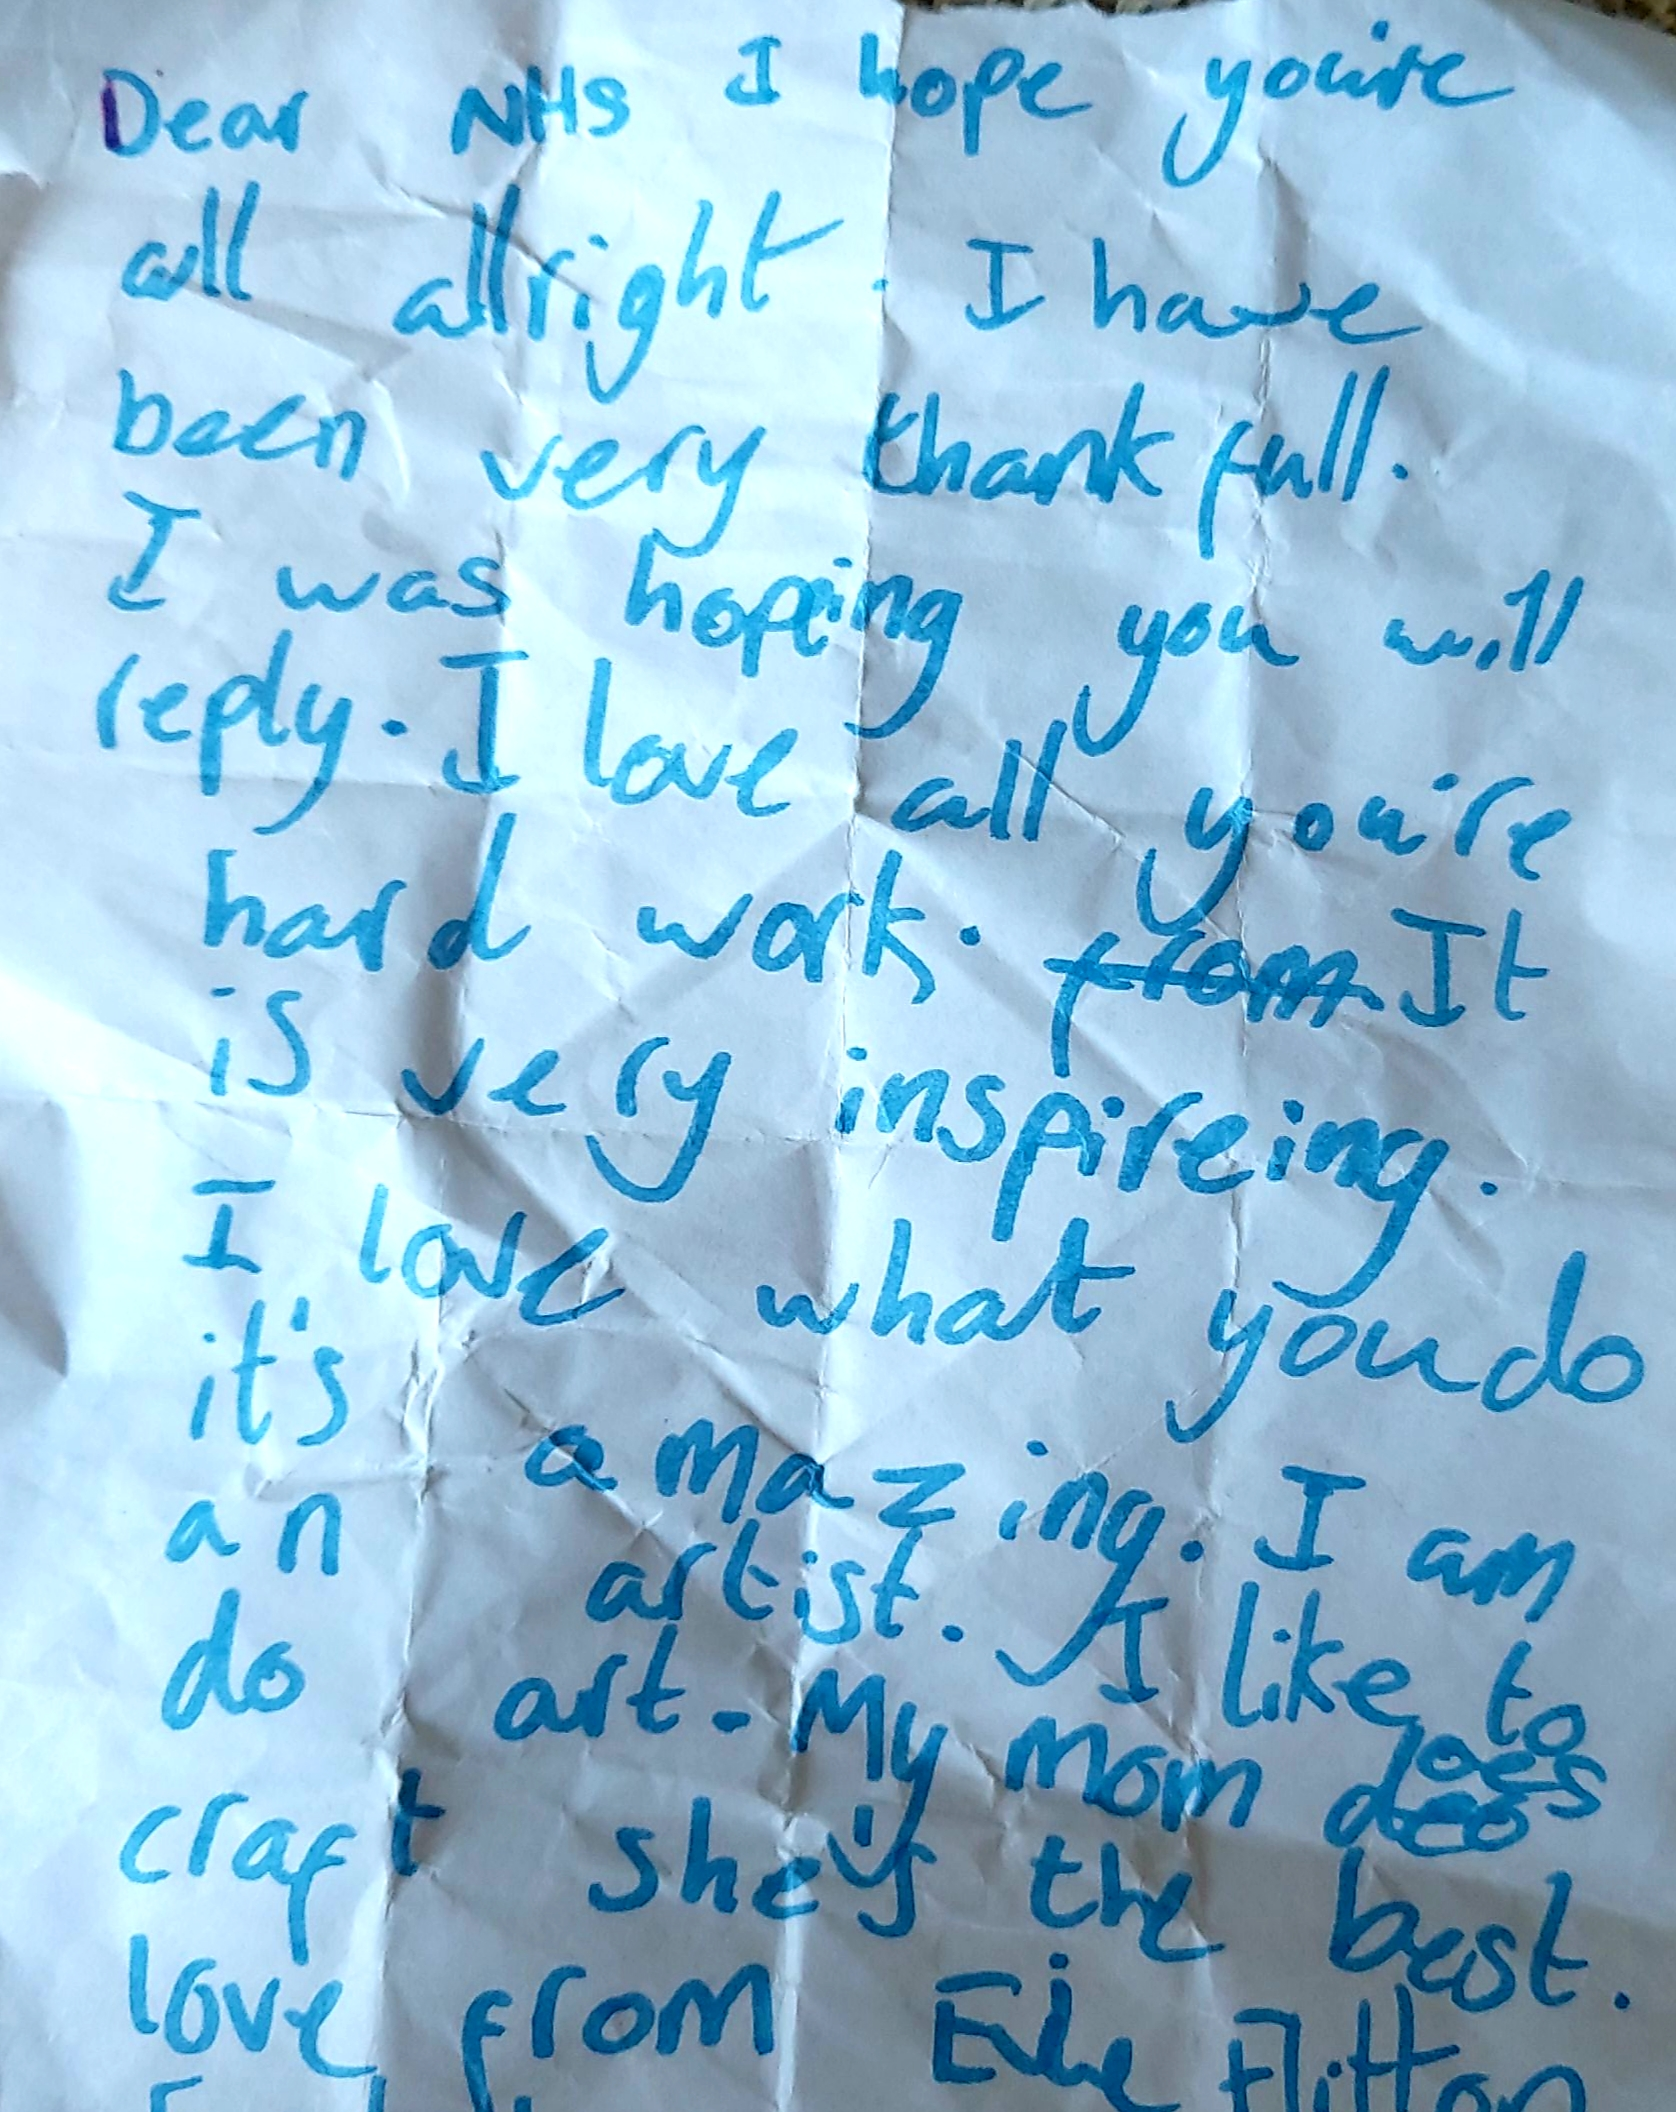 Dear NHS I hope you're
all allright. I have
been very thankfull.
I was hoping you will
reply. I love all you're
hard work. from It
is very inspireing.
I love what you do
it's amazing. I am
an artist. I like to
do art. My mom does
craft she's the best.
love from Flitton